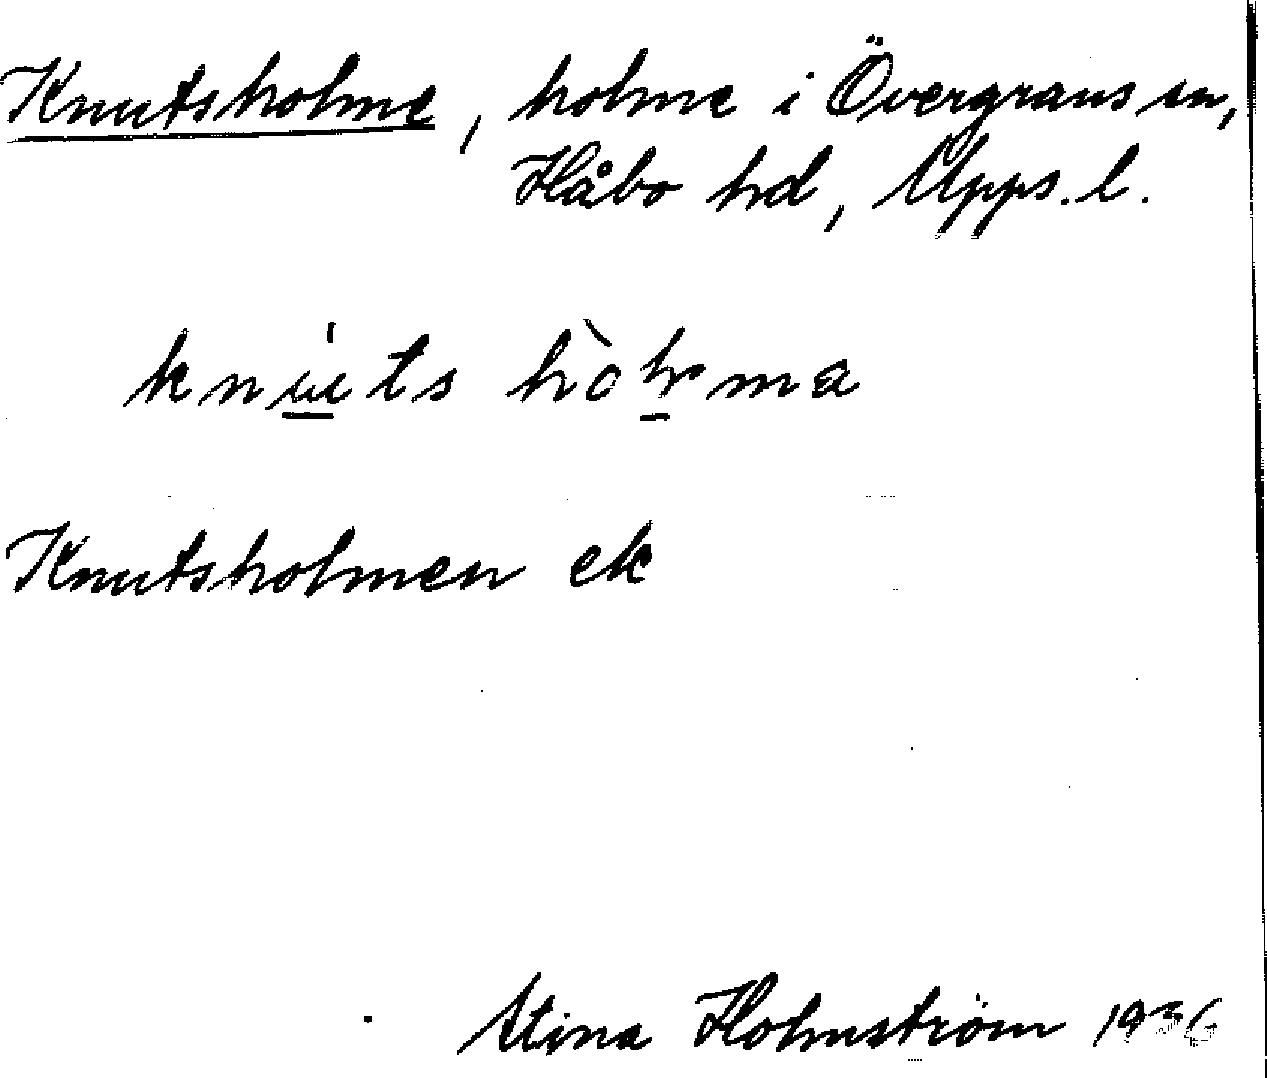 Knutsholme, holme i Övergrans sn,
Håbo hd, Upps. l.
Knutsholmen ek
Stina Holmström 1936